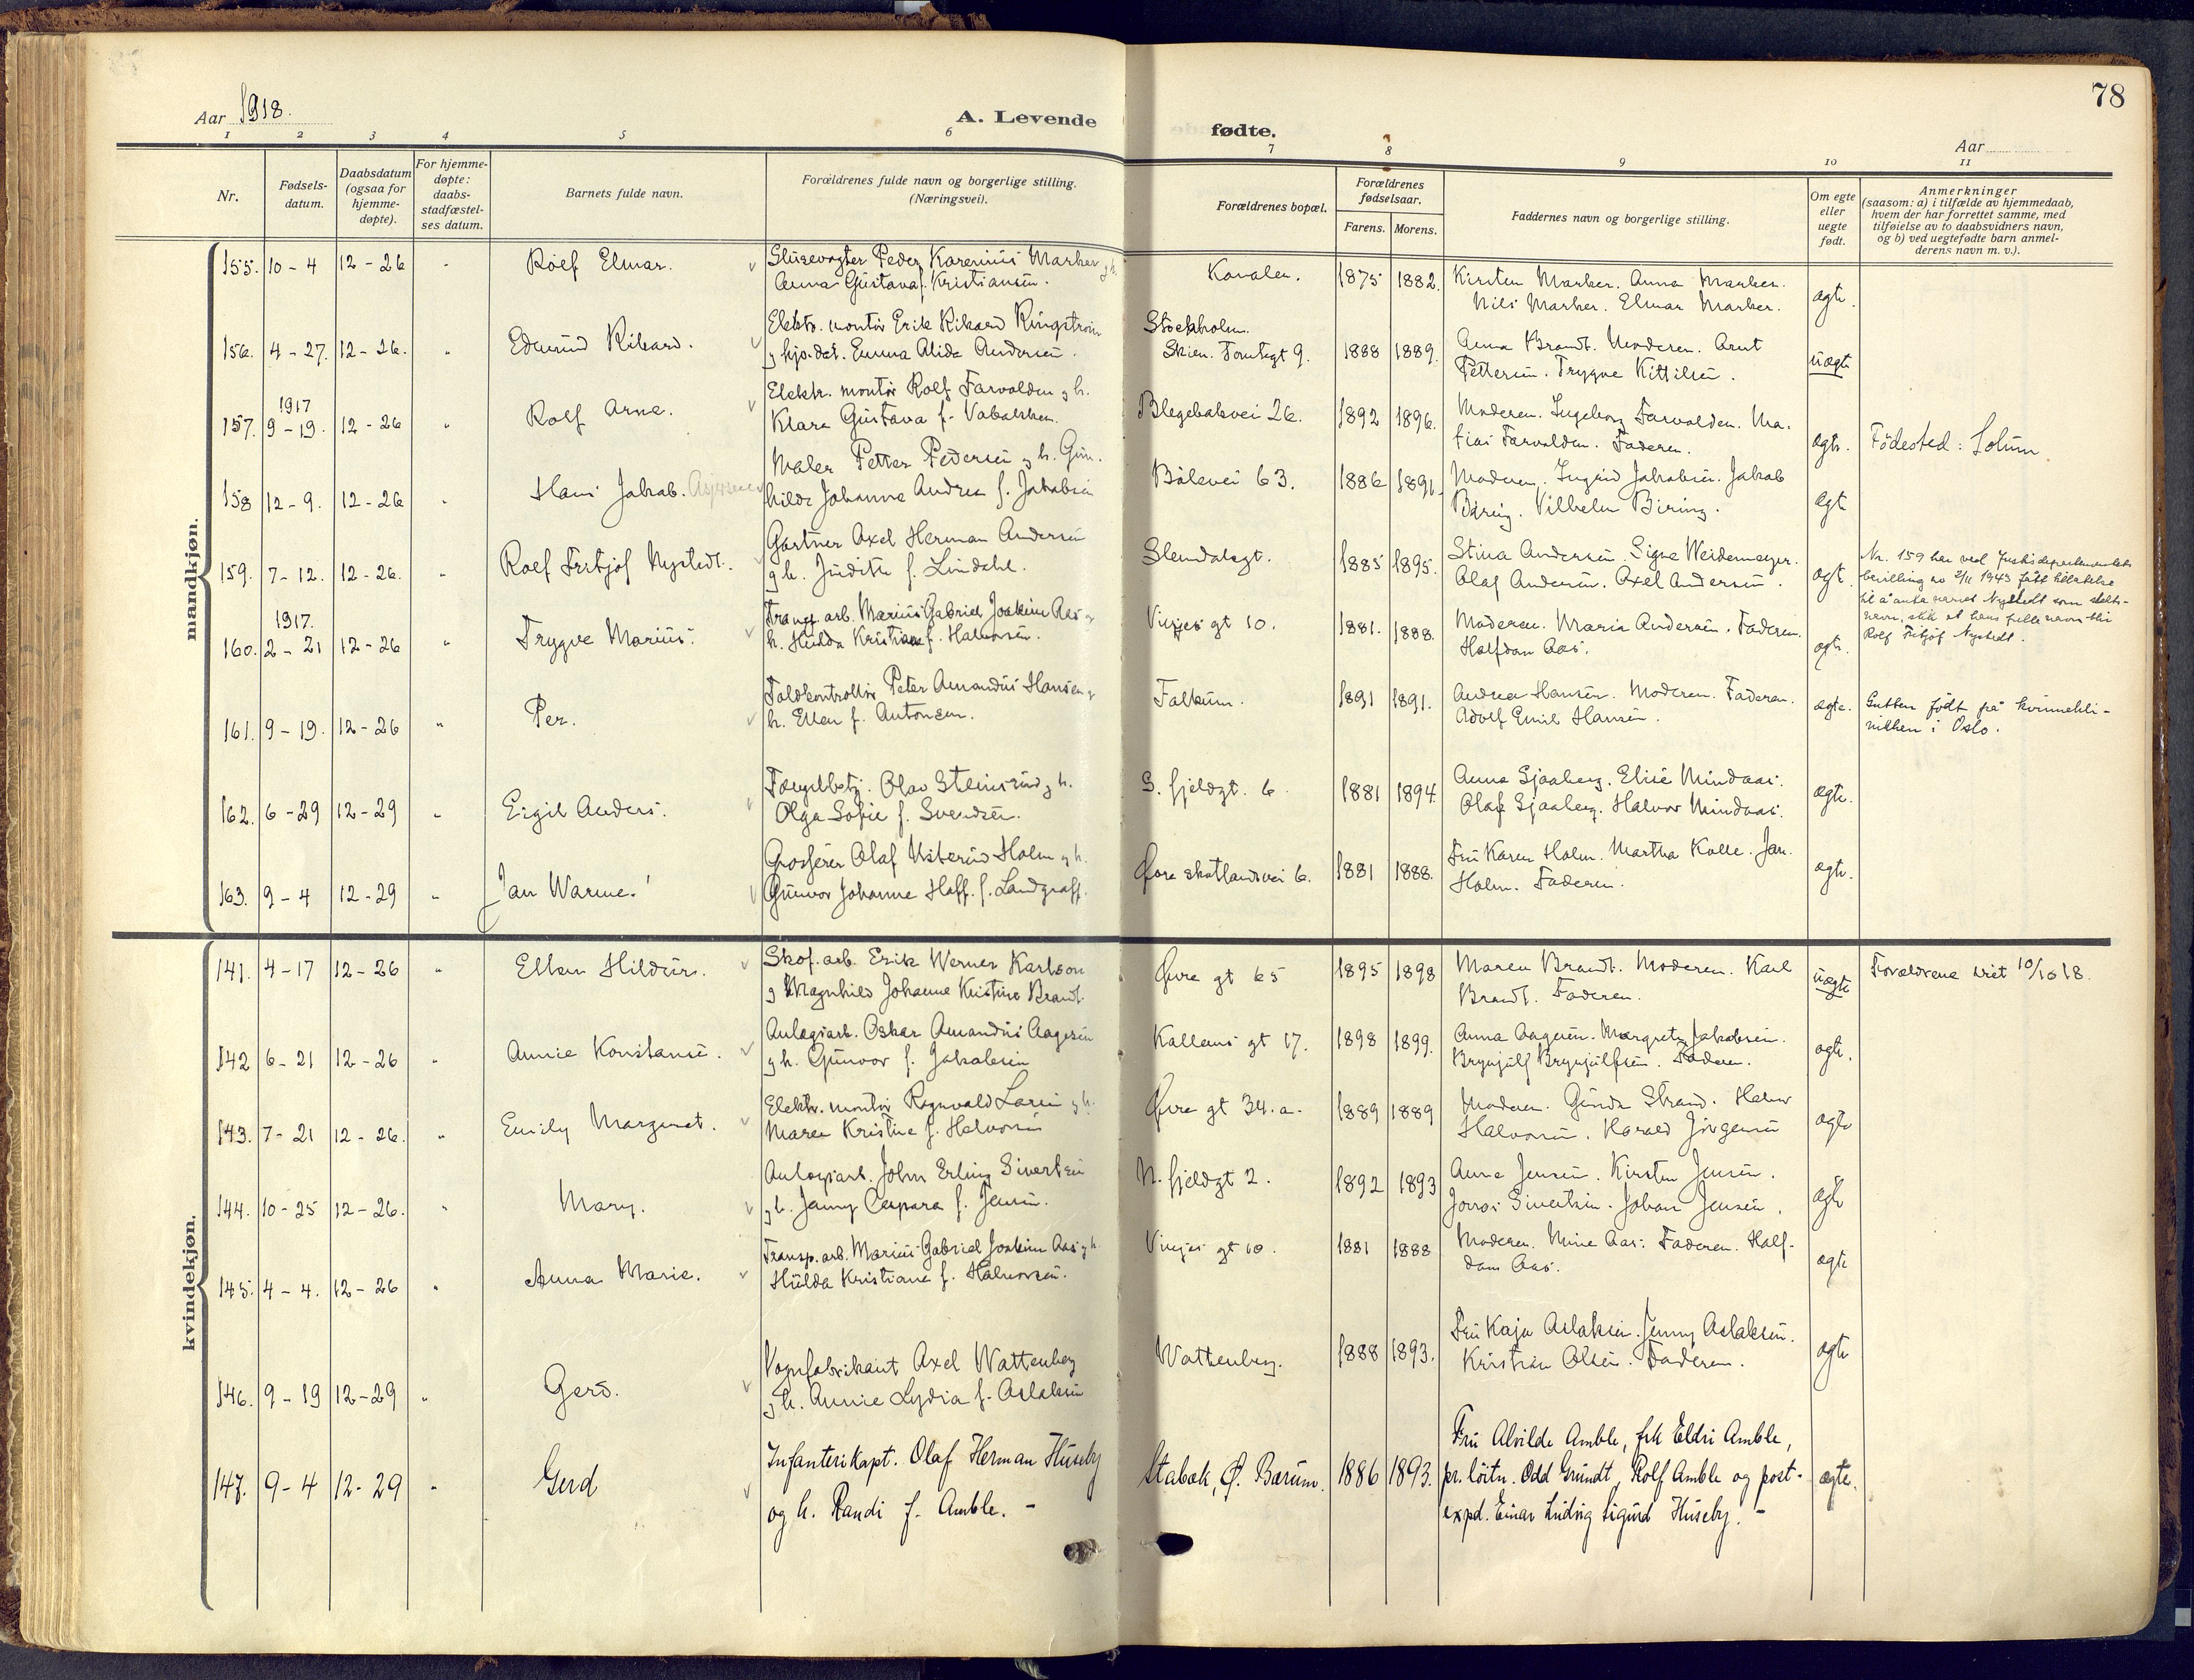 78
Aar 1918.
A. Levende
fødte.
Aar
1 2 3 4 5 6
7 8 9 10 11
Nr.
Fødsels-
datum.
Daabsdatum
(ogsaa for
hjemme-
døpte).
For hjemme-
døpte:
daabs-
stadfæstel-
ses datum.
Barnets fulde navn.
Forældrenes fulde navn og borgerlige stilling.
(Næringsvei).
Forældrenes bopæl.
Forældrenes
fødselsaar.
Farens. Morens.
Faddernes navn og borgerlige stilling.
Om egte
eller
uegte
født.
Anmerkninger
(saasom: a) i tilfælde av hjemmedaab,
hvem der har forrettet samme, med
tilføielse av to daabsvidners navn,
og b) ved uegtefødte barn anmel-
derens navn m. v.).
mandkjøn.
155. 10-4 12-26 " Rolf Elmar.
Slusevogter Peder Karenius Marker g h.
Anna Gustava f. Kristiansen.
Kanalen. 1875 1882.
Kirsten Marker. Anna Marker.
Nils Marker. Elmar Marker.
ægte.
156. 4-27. 12-26. " Edmund Rikard.
Elektr. montør Erik Rikard Ringstrøm
g hjp. dat. Emma Alida Andersen.
Stockholm.
Skien. Tomtegt 9. 1888 1889.
Anna Brandt. Moderen. Arnt
Pettersen. Trygve Kittilsen.
uægte
157. 1917
9-19. 12-26 " Rolf Arne.
Elektr. montør Rolf Farvolden g h.
Klara Gustava f.
Blegebakvei 26. 1892 1896.
Moderen. Ingeborg Farvolden. Ma-
tias Farvolden. Faderen.
ægte. Fødested: Solum
158 12-9. 12-26 " Hans Jakob.
Maler Petter Pedersen g h. Gun-
hilda Johanne Andrea f. Jakobsen
Bølevei 63. 1886 1891.
Moderen. Ingrid Jakobsen. Jakob
Biring. Vilhelm Biring.
ægt
159. 7-12. 12-26. " Rolf Fritjof Nystedt.
Gartner Axel Herman Andersen
g h. Judith f. Lindahl.
Slemdalsgt. 1885 1895.
Stina Andersen. Signe Weidemeyer.
Olaf Andersen. Axel Andersen.
ægt.
Nr. 159 har ved Justisdepartementets
bevilling av 2/11 1943 fått tillatelse
til å anta navnet Nystedt som slekts-
navn, slik at hans fulle navn blir
Rolf Fritjof Nystedt.
160. 1917.
2-21 12-26 " Trygve Marius.
Transp. arb. Marius Gabriel Joakim Aas g
h. Hulda Kristiane f. Halvorsen.
Vinjes gt 10. 1881. 1888.
Moderen. Maria Andersen. Faderen.
Halfdan Aas.
ægte.
161. 9-19. 12-26 " Per.
Toldkontrollør Peter Amandus Hansen g
h. Ellen f. Antonsen.
Falkum. 1891 1891.
Andrea Hansen. Moderen. Faderen.
Adolf Emil Hansen.
ægte.
Gutten født på kvinnekli-
nikken i Oslo.
162. 6-29 12-29 " Eigil Anders.
Fængselbetj. Olav Steinsrud g h.
Olga Sofie f. Svendsen.
S. fjeldgt. 6. 1881 1894.
Anna Sjaaberg. Elise Mindaas.
Olaf Sjaaberg. Halvor Mindaas.
ægte.
163. 9-4 12-29 " Jan Warme.
Grosserer Olaf Usterud Holm g h.
Gunvor Johanne Hoff. f. Landgraff.
Øvre skotlandsvei 6. 1881 1888.
Fru Karen Holm. Martha Kolle. Jan.
Holm. Faderen.
ægte.
kvindekjøn.
141. 4-17 12-26 " Ellen Hildur.
Skof. arb. Erik Werner Karlson
g Magnhild Johanne Kristine Brandt.
Øvre gt 65 1895 1898
Maren Brandt. Moderen. Karl
Brandt. Faderen.
uægte Forældrene viet 10/10 18.
142 6-21 12-26 " Annie Konstanse.
Anlægsarb. Oskar Amandus Aagesen
g h. Gunvor f. Jakobsen
Kallems gt 17. 1898 1899.
Anna Aagesen. Margrete Jakobsen.
Brynjulf Brynjulfsen. Faderen.
ægte.
143. 7-21 12-26. " Emily Margaret.
Elektr. montør Ragnvald Larsen g h.
Maren Kristine f. Halvorsen
Øvre gt 34.a. 1889 1889
Moderen. Gunda Strand. Halvor
Halvorsen. Harald Jørgensen
ægte
144. 10-25 12-26. " Mary.
Anlægsarb. John Erling Sivertsen
g h. Jenny Caspara f. Jensen.
N. fjeldgt 2. 1892 1893
Anna Jensen. Kirsten Jensen.
Sivertsen. Johan Jensen.
ægte
145. 4-4. 12-26 " Anna Marie.
Transp. arb. Marius Gabriel Joakim Aas g h.
Hulda Kristiane f. Halvorsen.
Vinjes gt 10. 1881 1888
Moderen. Mina Aas. Faderen. Half-
dan Aas.
ægte
146. 9-19 12-29 " Gerd.
Vognfabrikant Axel Wattenberg
g h. Annie Lydia f. Aslaksen
Wattenberg. 1888 1893.
Fru Kaja Aslaksen. Jenny Aslaksen.
Kristian Olsen. Faderen.
ægte
147. 9-4 12-29 " Gerd
Infanterikapt. Olaf Herman Huseby
og h. Randi f. Amble. -
Stabæk, Ø. Bærum. 1886 1893.
Fru Alvilde Amble, frk Eldri Amble,
pr. løitn. Odd Grundt, Rolf Amble og post-
expd. Einar Ludvig Sigurd Huseby. -
ægte.